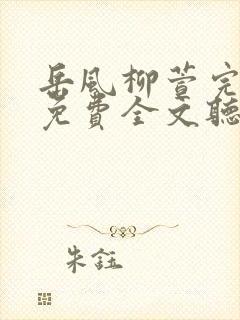 岳风柳萱完
免費全文聽
朱鈺